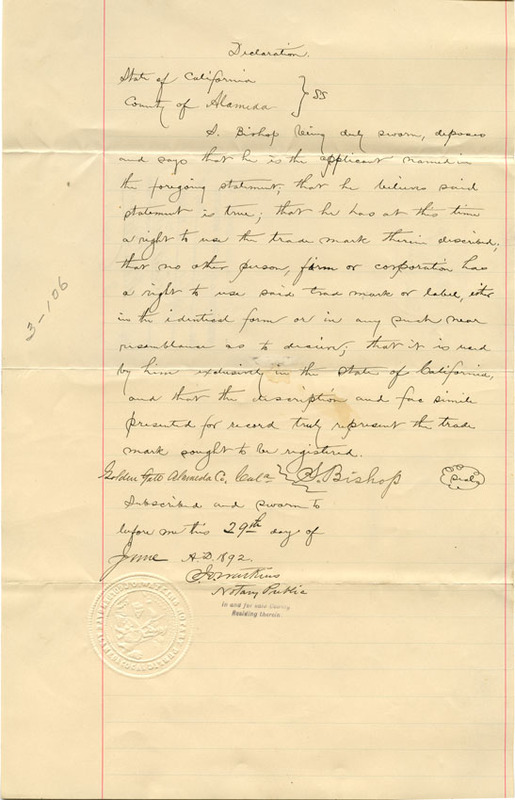 Declaration.
State of California
County of Alameda } SS
S. Bishop being duly sworn, deposes
and says that he is the applicant named in
the foregoing statement; that he believes said
statement is true; that he has at this time
a right to use the trade mark therein described;
that no other person, firm or corporation has
a right to use said trade mark or label, either
in the identical form or in any such near
resemblance as to deceive; that it is used
by him exclusively in the state of California,
and that the description and fac simile
presented for record truly represent the trade
mark sought to be registered.
Golden Gate Alameda Co, Cala } S. Bishop (Seal)
Subscribed and sworn to
before me this 29th day of
June A.D. 1892.
Notary Public
In and for said County,
Residing therein.
3-106